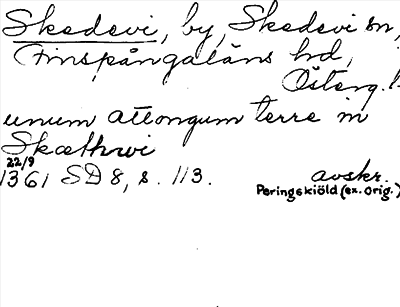 Skedevi, by, Skedevi sn,
Finspångaläns hd,
Österg. l.
unum attongum terre in
Skæthwi
22/9
1361 SD 8, s. 113. avskr.
Peringskiöld (ex. orig.)